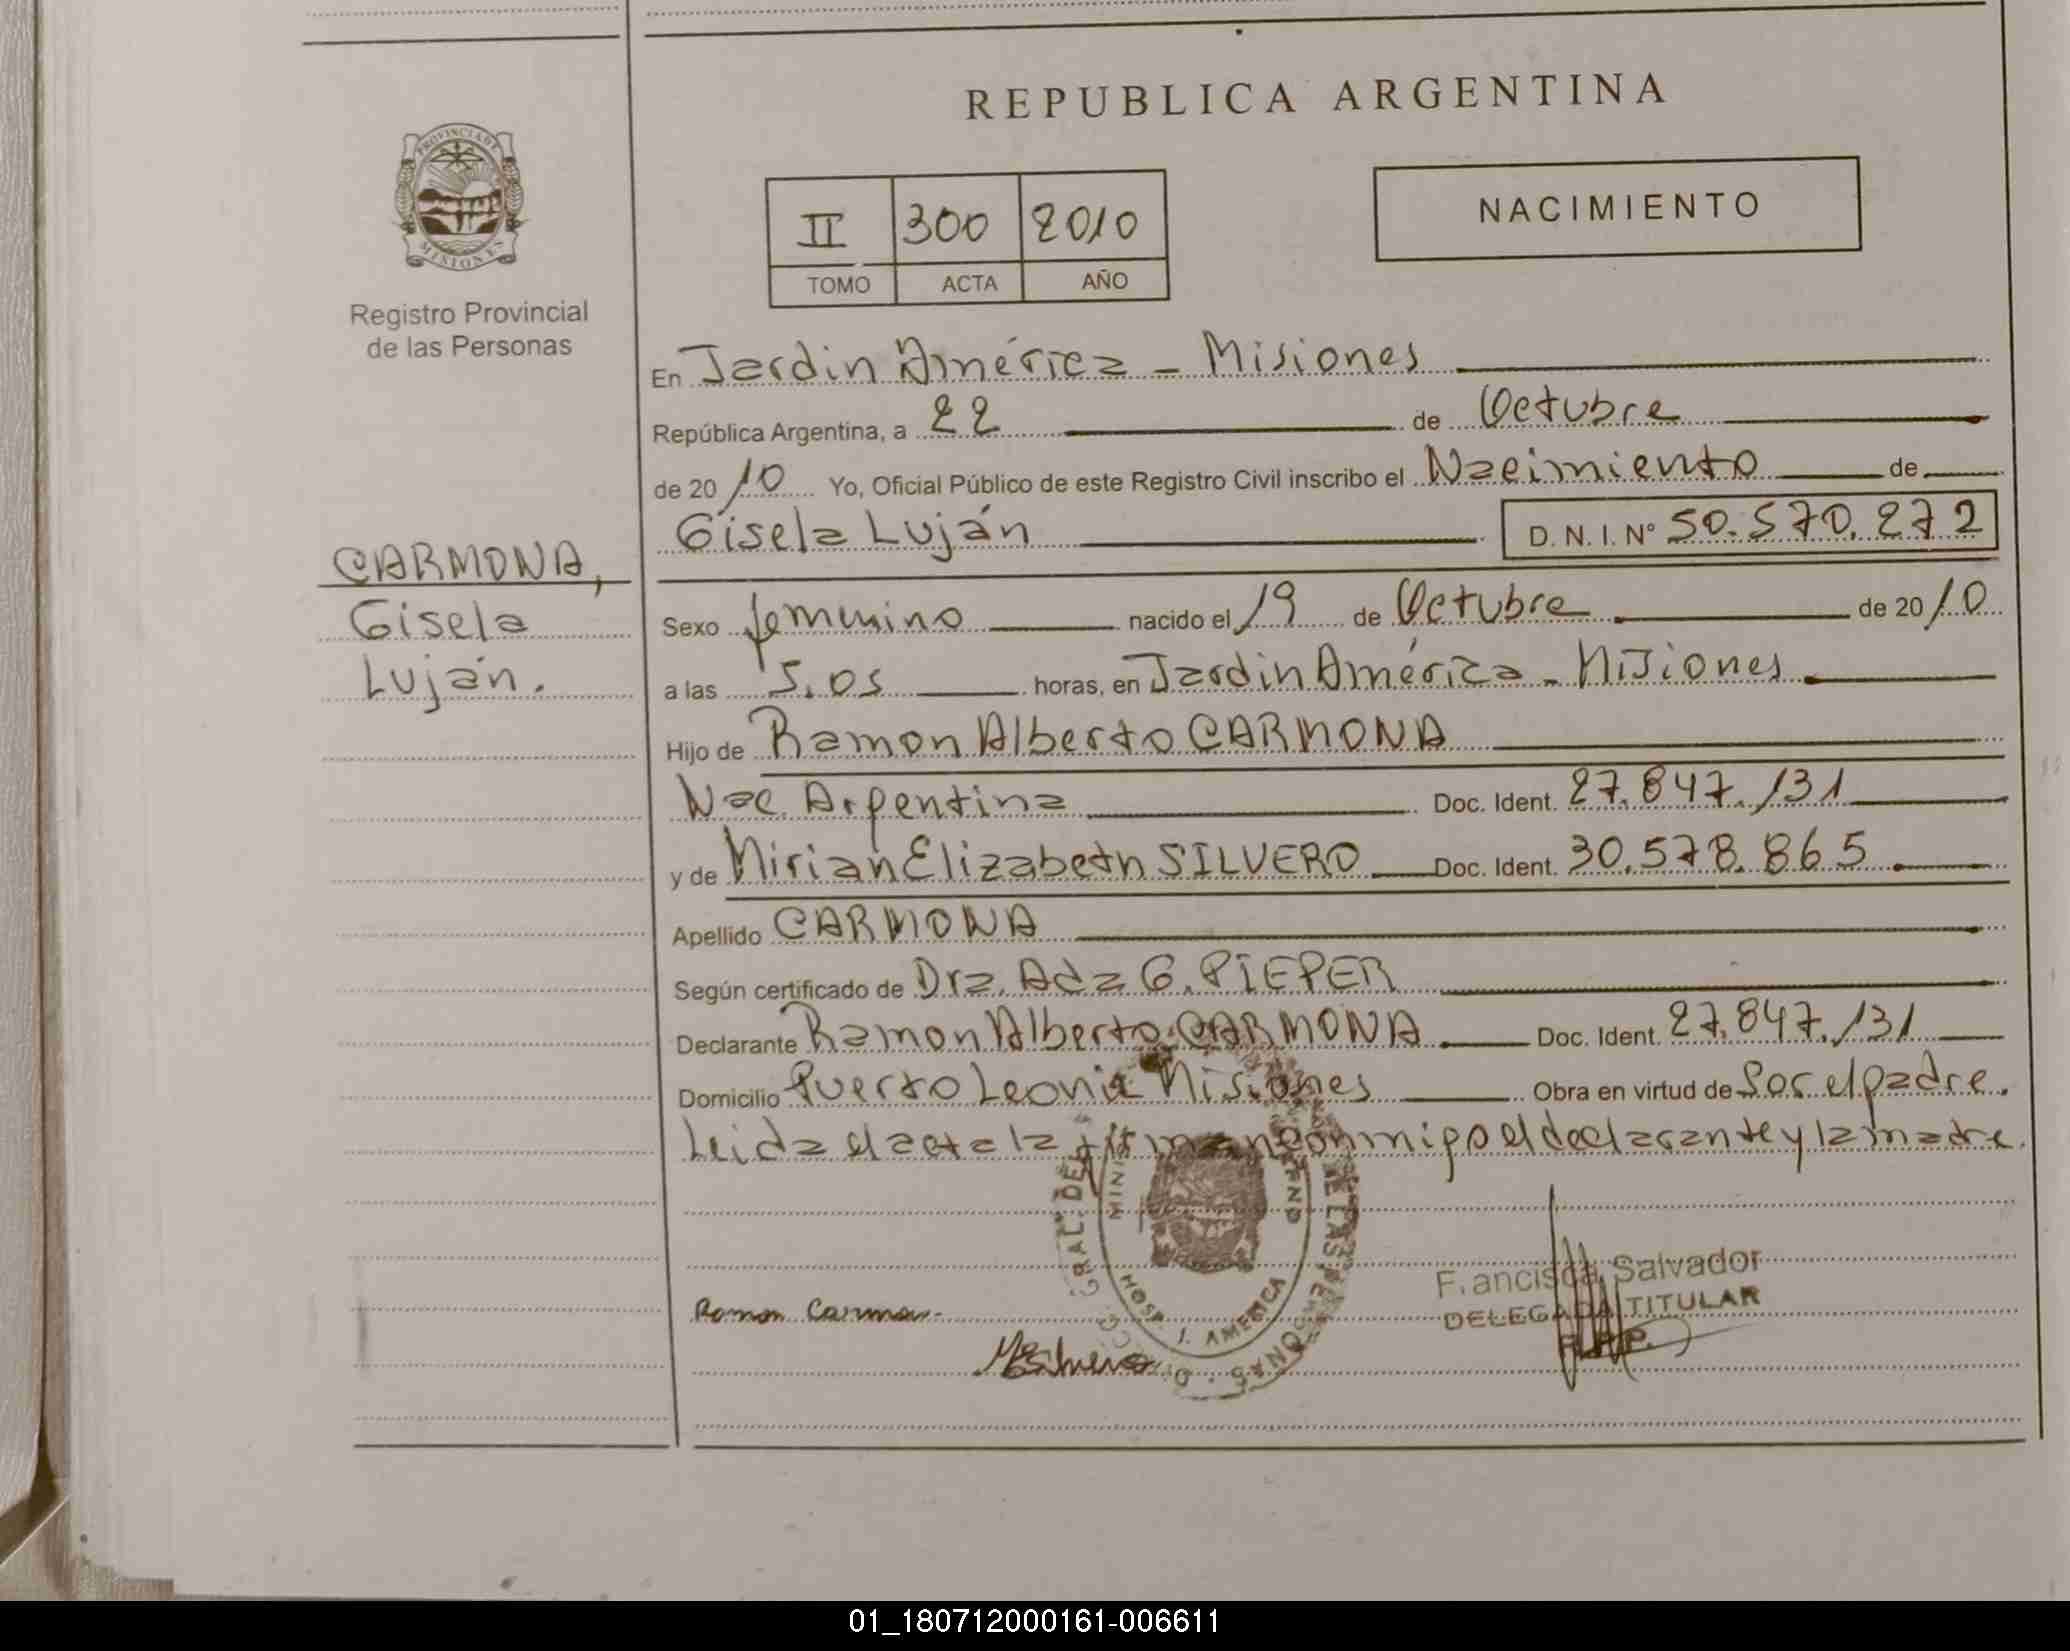 REPUBLICA ARGENTINA
PROVINCIA DE
MISIONES
Registro Provincial
de las Personas
II 300 2010
TOMO ACTA AÑO
NACIMIENTO
En Jardin América - Misiones
República Argentina, a 22 de Octubre
de 20 10 Yo, Oficial Público de este Registro Civil inscribo el Nacimiento de
Gisela Luján D. N. I. N° 50.570.272
CARMONA,
Gisela
Luján.
Sexo femenino nacido el 19 de Octubre de 20 10
a las 5.05 horas, en Jardin América - Misiones
Hijo de Ramon Alberto CARMONA
Nac. Argentina Doc. Ident. 27.847.131
y de Mirian Elizabeth SILVERO Doc. Ident. 30.578.865
Apellido CARMONA
Según certificado de Dra. Ada G. PIEPER
Declarante Ramon Alberto CARMONA Doc. Ident. 27.847.131
Domicilio Puerto Leoni Misiones Obra en virtud de Por el padre.
Leida el acta la firman conmigo el declarante y la madre.
GRAL. DE LAS PERSONAS
HOSP. J. AMERICA
Francisca Salvador
DELEGADA TITULAR
R.P.P.
Ramon Carmona
MESilvero
01_180712000161-006611